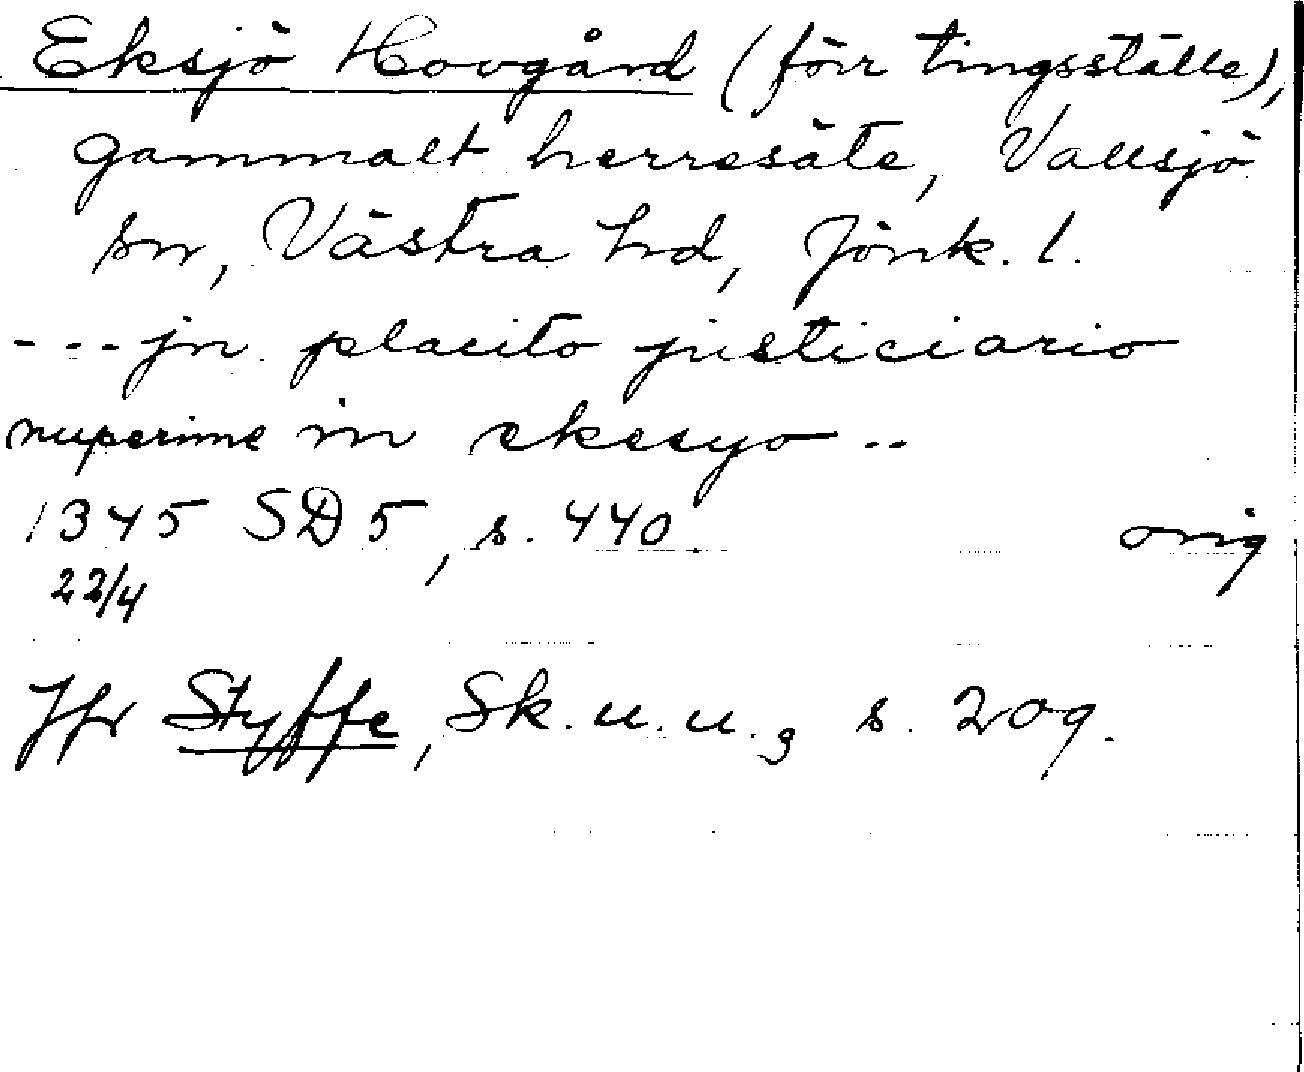 Eksjö Hovgård (förr tingsställe),
gammalt herresäte, Vallsjö
sn, Västra hd, Jönk. l.
--- jn placito justiciario
nuperime in ekesyo --
1345 SD 5, s. 440 orig
22/4
Jfr Styffe, Sk. u. u.3 s. 209.